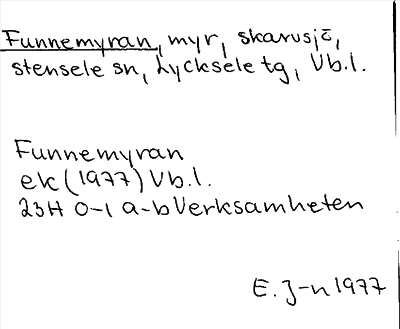 Funnemyran, myr, skarvsjö,
stensele sn, Lycksele tg, Vb.l.
Funnemyran
ek (1977) Vb.l.
23H 0-1 a-b Verksamheten
E. J-n 1977